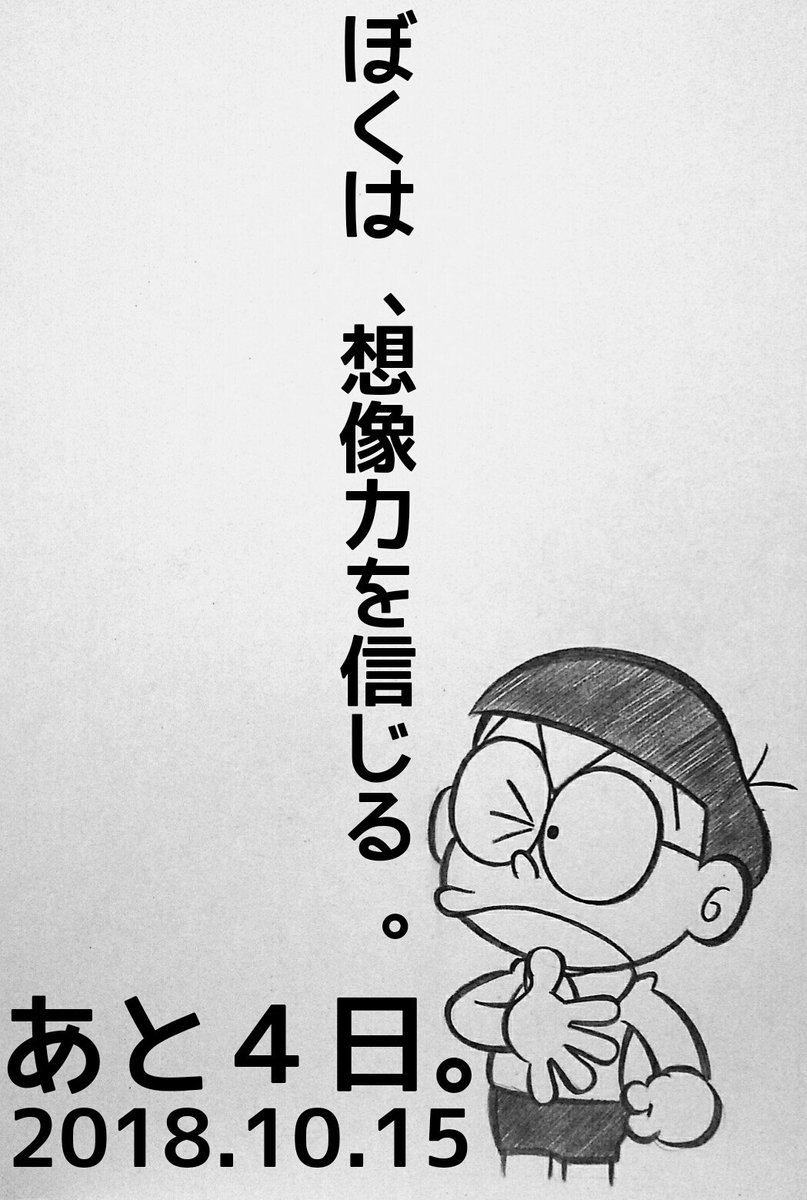 ぼくは、想像力を信じる。
あと4日。
2018.10.15